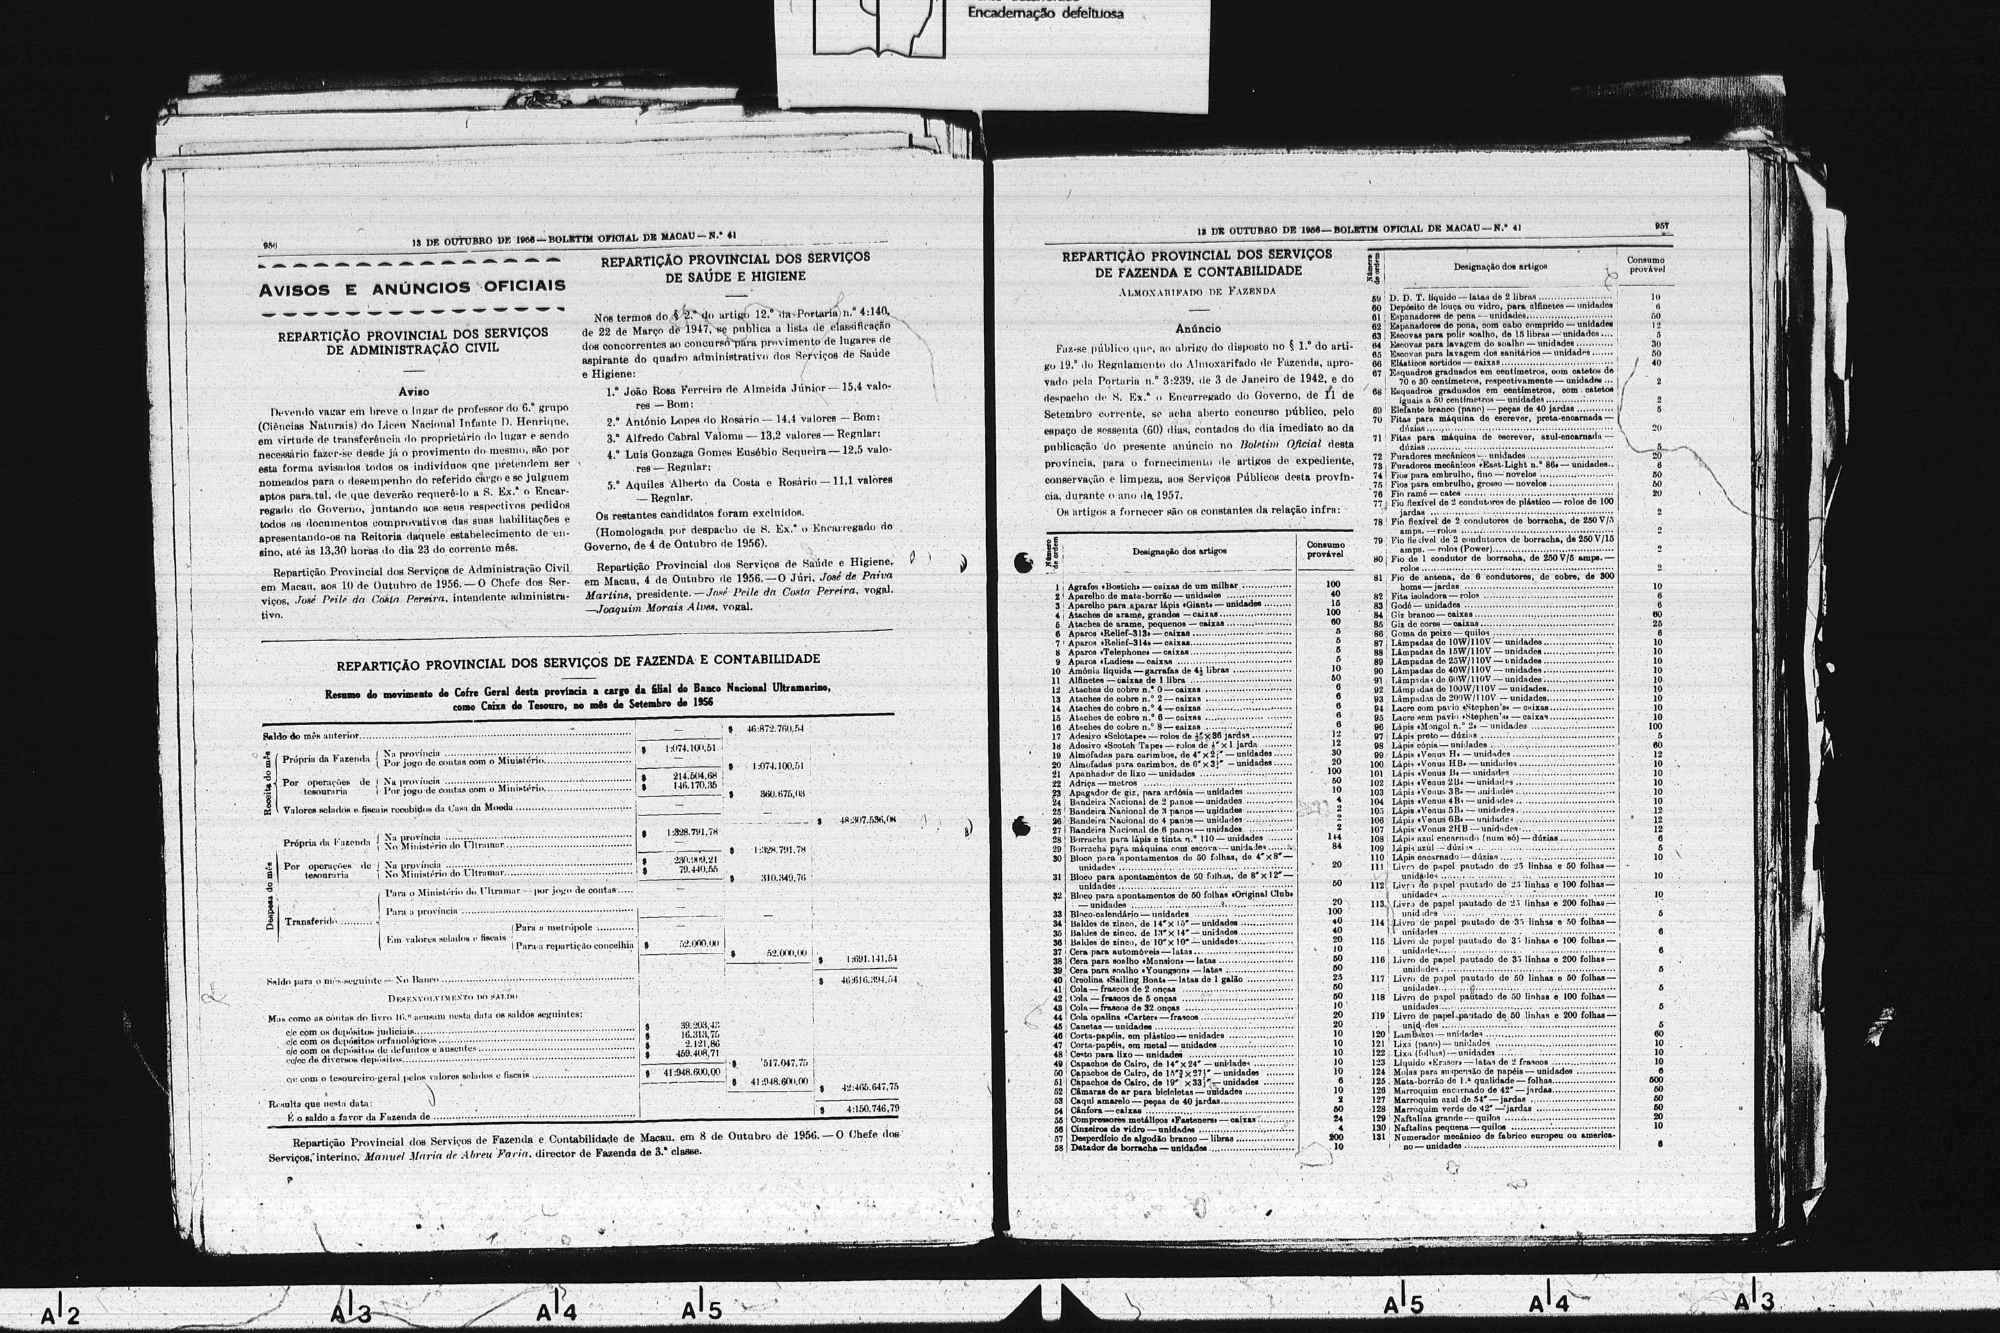 Encadernação defeituosa
13 DE OUTUBRO DE 1956 — BOLETIM OFICIAL DE MACAU — N.º 41
AVISOS E ANÚNCIOS OFICIAIS
REPARTIÇÃO PROVINCIAL DOS SERVIÇOS
DE ADMINISTRAÇÃO CIVIL
Aviso
Devendo vagar em breve o lugar de professor do 6.º grupo
(Ciências Naturais) do Liceu Nacional Infante D. Henrique,
em virtude de transferência do proprietário do lugar e sendo
necessário fazer-se desde já o provimento do mesmo, são por
esta forma avisados todos os indivíduos que pretendem ser
nomeados para o desempenho do referido cargo e se julguem
aptos para tal, de que deverão requerê-lo a S. Ex.ª o Encar-
regado do Governo, juntando aos seus respectivos pedidos
todos os documentos comprovativos das suas habilitações e
apresentando-os na Reitoria daquele estabelecimento de en-
sino, até às 13,30 horas do dia 23 do corrente mês.
Repartição Provincial dos Serviços de Administração Civil
em Macau, aos 10 de Outubro de 1956. — O Chefe dos Ser-
viços, José Peile da Costa Pereira, intendente administra-
tivo.
REPARTIÇÃO PROVINCIAL DOS SERVIÇOS
DE SAÚDE E HIGIENE
Nos termos do § 2.º do artigo 12.º da Portaria n.º 4:140,
de 22 de Março de 1947, se publica a lista de classificação
dos concorrentes ao concurso para provimento de lugares de
aspirante do quadro administrativo dos Serviços de Saúde
e Higiene:
1.º João Rosa Ferreira de Almeida Júnior — 15,4 valo-
res — Bom;
2.º António Lopes do Rosário — 14,4 valores — Bom;
3.º Alfredo Cabral Valoma — 13,2 valores — Regular;
4.º Luís Gonzaga Gomes Eusébio Sequeira — 12,5 valo-
res — Regular;
5.º Aquiles Alberto da Costa e Rosário — 11,1 valores
— Regular.
Os restantes candidatos foram excluídos.
(Homologada por despacho de S. Ex.ª o Encarregado do
Governo, de 4 de Outubro de 1956).
Repartição Provincial dos Serviços de Saúde e Higiene,
em Macau, 4 de Outubro de 1956. — O Júri, José de Paiva
Martins, presidente. — José Peile da Costa Pereira, vogal.
— Joaquim Morais Alves, vogal.
REPARTIÇÃO PROVINCIAL DOS SERVIÇOS DE FAZENDA E CONTABILIDADE
Resumo do movimento do Cofre Geral desta província a cargo da filial do Banco Nacional Ultramarino,
como Caixa do Tesouro, no mês de Setembro de 1956
Saldo do mês anterior — $ 46:872.760,54
Receita do mês
Própria da Fazenda
Na província $ 1:074.100,51
Por jogo de contas com o Ministério — $ 1:074.100,51
Por operações de tesouraria
Na província $ 214.504,68
Por jogo de contas com o Ministério $ 146.170,35 $ 360.675,03
Valores selados e fiscais recebidos da Casa da Moeda — — $ 48:307.536,08
Despesa do mês
Própria da Fazenda
Na província $ 1:328.791,78
No Ministério do Ultramar — $ 1:328.791,78
Por operações de tesouraria
Na província $ 230.909,21
No Ministério do Ultramar $ 79.440,55 $ 310.349,76
Transferido
Para o Ministério do Ultramar — por jogo de contas — —
Para a província — —
Em valores selados e fiscais
Para a metrópole —
Para a repartição concelhia $ 52.000,00 $ 52.000,00 $ 1:691.141,54
Saldo para o mês seguinte — No Banco $ 46:616.394,54
DESENVOLVIMENTO DO SALDO
Mas como as contas do livro 16.º acusam nesta data os saldos seguintes:
c/c com os depósitos judiciais $ 39.203,43
c/c com os depósitos orfanológicos $ 16.313,75
c/c com os depósitos de defuntos e ausentes $ 2.121,86
co/cc de diversos depósitos $ 459.408,71 $ 517.047,75
c/c com o tesoureiro-geral pelos valores selados e fiscais $ 41:948.600,00 $ 41:948.600,00 $ 42:465.647,75
Resulta que nesta data:
É o saldo a favor da Fazenda de $ 4:150.746,79
Repartição Provincial dos Serviços de Fazenda e Contabilidade de Macau, em 8 de Outubro de 1956. — O Chefe dos
Serviços, interino, Manuel Maria de Abreu Faria, director de Fazenda de 3.ª classe.
13 DE OUTUBRO DE 1956 — BOLETIM OFICIAL DE MACAU — N.º 41 957
REPARTIÇÃO PROVINCIAL DOS SERVIÇOS
DE FAZENDA E CONTABILIDADE
ALMOXARIFADO DE FAZENDA
Anúncio
Faz-se público que, ao abrigo do disposto no § 1.º do arti-
go 19.º do Regulamento do Almoxarifado de Fazenda, apro-
vado pela Portaria n.º 3:239, de 3 de Janeiro de 1942, e do
despacho de S. Ex.ª o Encarregado do Governo, de 11 de
Setembro corrente, se acha aberto concurso público, pelo
espaço de sessenta (60) dias, contados do dia imediato ao da
publicação do presente anúncio no Boletim Oficial desta
província, para o fornecimento de artigos de expediente,
conservação e limpeza, aos Serviços Públicos desta provín-
cia, durante o ano de 1957.
Os artigos a fornecer são os constantes da relação infra:
Número de ordem Designação dos artigos Consumo provável
1 Agrafos «Bostich» — caixas de um milhar 100
2 Aparelho de mata-borrão — unidades 40
3 Aparelho para aparar lápis «Giant» — unidades 15
4 Ataches de arame, grandes — caixas 100
5 Ataches de arame, pequenos — caixas 60
6 Aparos «Relief-313» — caixas 5
7 Aparos «Relief-314» — caixas 5
8 Aparos «Telephone» — caixas 5
9 Aparos «Ladies» — caixas 5
10 Amónia líquida — garrafas de 4½ libras 10
11 Alfinetes — caixas de 1 libra 50
12 Ataches de cobre n.º 0 — caixas 6
13 Ataches de cobre n.º 2 — caixas 6
14 Ataches de cobre n.º 4 — caixas 6
15 Ataches de cobre n.º 6 — caixas 6
16 Ataches de cobre n.º 8 — caixas 6
17 Adesivo «Selotape» — rolos de ½″×36 jardas 12
18 Adesivo «Scotch Tape» — rolos de ×1 jarda 12
19 Almofadas para carimbos, de 4″×2 — unidades 30
20 Almofadas para carimbos, de 6″×3 — unidades 20
21 Apanhador de lixo — unidades 100
22 Adriça — metros 50
23 Apagador de giz, para ardósia — unidades 10
24 Bandeira Nacional de 2 panos — unidades 4
25 Bandeira Nacional de 3 panos — unidades 2
26 Bandeira Nacional de 4 panos — unidades 2
27 Bandeira Nacional de 6 panos — unidades 2
28 Borracha para lápis e tinta n.º 110 — unidades 144
29 Borracha para máquina com escova — unidades 84
30 Bloco para apontamentos de 50 folhas, de 4″×8″ —
unidades 20
31 Bloco para apontamentos de 50 folhas, de 8″×12″ —
unidades 50
32 Bloco para apontamentos de 50 folhas «Original Club»
— unidades 20
33 Bloco-calendário — unidades 100
34 Baldes de zinco, de 14″×15″ — unidades 40
35 Baldes de zinco, de 13″×14″ — unidades 40
36 Baldes de zinco, de 10″×10″ — unidades 20
37 Cera para automóveis — latas 10
38 Cera para soalho «Mansion» — latas 50
39 Cera para soalho «Youngson» — latas 50
40 Creolina «Sailing Boat» — latas de 1 galão 25
41 Cola — frascos de 2 onças 50
42 Cola — frascos de 5 onças 50
43 Cola — frascos de 32 onças 10
44 Cola opalina «Carter» — frascos 20
45 Canetas — unidades 20
46 Corta-papéis, em plástico — unidades 10
47 Corta-papéis, em metal — unidades 10
48 Cesto para lixo — unidades 10
49 Capachos de Cairo, de 14″×24″ — unidades 10
50 Capachos de Cairo, de — unidades 10
51 Capachos de Cairo, de — unidades 6
52 Câmaras de ar para bicicletas — unidades 10
53 Caqui amarelo — peças de 40 jardas 2
54 Cânfora — caixas 50
55 Compressores metálicos «Fasteners» — caixas 24
56 Cinzeiros de vidro — unidades 4
57 Desperdício de algodão branco — libras 200
58 Datador de borracha — unidades 10
Número de ordem Designação dos artigos Consumo provável
59 D. D. T. líquido — latas de 2 libras 10
60 Depósito de louça ou vidro, para alfinetes — unidades 6
61 Espanadores de pena — unidades 50
62 Espanadores de pena, com cabo comprido — unidades 12
63 Escovas para polir soalho, de 15 libras — unidades 5
64 Escovas para lavagem do soalho — unidades 30
65 Escovas para lavagem dos sanitários — unidades 50
66 Elásticos sortidos — caixas 40
67 Esquadros graduados em centímetros, com catetos de
70 e 30 centímetros, respectivamente — unidades 2
68 Esquadros graduados em centímetros, com catetos
iguais a 50 centímetros — unidades 2
69 Elefante branco (pano) — peças de 40 jardas 5
70 Fitas para máquina de escrever, preta-encarnada —
dúzias 20
71 Fitas para máquina de escrever, azul-encarnada —
dúzias 5
72 Furadores mecânicos — unidades 20
73 Furadores mecânicos «East-Light n.º 86» — unidades 6
74 Fios para embrulho, fino — novelos 50
75 Fios para embrulho, grosso — novelos 50
76 Fio ramé — cates 20
77 Fio flexível de 2 condutores de plástico — rolos de 100
jardas 2
78 Fio flexível de 2 condutores de borracha, de 250 V/5
amps. — rolos 2
79 Fio flexível de 2 condutores de borracha, de 250 V/15
amps. — rolos (Power) 2
80 Fio de 1 condutor de borracha, de 250 V/5 amps. —
rolos 2
81 Fio de antena, de 6 condutores, de cobre, de 300
homs — jardas 10
82 Fita isoladora — rolos 6
83 Godé — unidades 6
84 Giz branco — caixas 60
85 Giz de cores — caixas 25
86 Goma de peixe — quilos 6
87 Lâmpadas de 10W/110V — unidades 10
88 Lâmpadas de 15W/110V — unidades 10
89 Lâmpadas de 25W/110V — unidades 10
90 Lâmpadas de 40W/110V — unidades 10
91 Lâmpadas de 60W/110V — unidades 10
92 Lâmpadas de 100W/110V — unidades 10
93 Lâmpadas de 200W/110V — unidades 10
94 Lacre com pavio «Stephen's» — caixas 10
95 Lacre sem pavio «Stephen's» — caixas 10
96 Lápis «Mongol n.º 2» — unidades 100
97 Lápis preto — dúzias 5
98 Lápis cópia — unidades 60
99 Lápis «Venus H» — unidades 12
100 Lápis «Venus HB» — unidades 10
101 Lápis «Venus B» — unidades 10
102 Lápis «Venus 2B» — unidades 10
103 Lápis «Venus 3B» — unidades 10
104 Lápis «Venus 4B» — unidades 10
105 Lápis «Venus 5B» — unidades 12
106 Lápis «Venus 6B» — unidades 12
107 Lápis «Venus 2HB — unidades 12
108 Lápis azul encarnado (num só) — dúzias 6
109 Lápis azul — dúzias 5
110 Lápis encarnado — dúzias 10
111 Livro de papel pautado de 25 linhas e 50 folhas —
unidades 10
112 Livro de papel pautado de 25 linhas e 100 folhas —
unidades 10
113 Livro de papel pautado de 25 linhas e 200 folhas —
unidades 5
114 Livro de papel pautado de 35 linhas e 50 folhas —
unidades 6
115 Livro de papel pautado de 35 linhas e 100 folhas —
unidades 6
116 Livro de papel pautado de 35 linhas e 200 folhas —
unidades 5
117 Livro de papel pautado de 50 linhas e 50 folhas —
unidades 5
118 Livro de papel pautado de 50 linhas e 100 folhas —
unidades 5
119 Livro de papel pautado de 50 linhas e 200 folhas —
unidades 5
120 Lambazes — unidades 60
121 Lixa (pano) — unidades 10
122 Lixa (folhas) — unidades 10
123 Líquido «Eraser» — latas de 2 frascos 10
124 Molas para suspensão de papéis — unidades 6
125 Mata-borrão de 1.ª qualidade — folhas 500
126 Marroquim encarnado de 42″ — jardas 50
127 Marroquim azul de 54″ — jardas 50
128 Marroquim verde de 42″ — jardas 50
129 Naftalina grande — quilos 20
130 Naftalina pequena — quilos 10
131 Numerador mecânico de fabrico europeu ou america-
no — unidades 6
A2 A3 A4 A5 A5 A4 A3